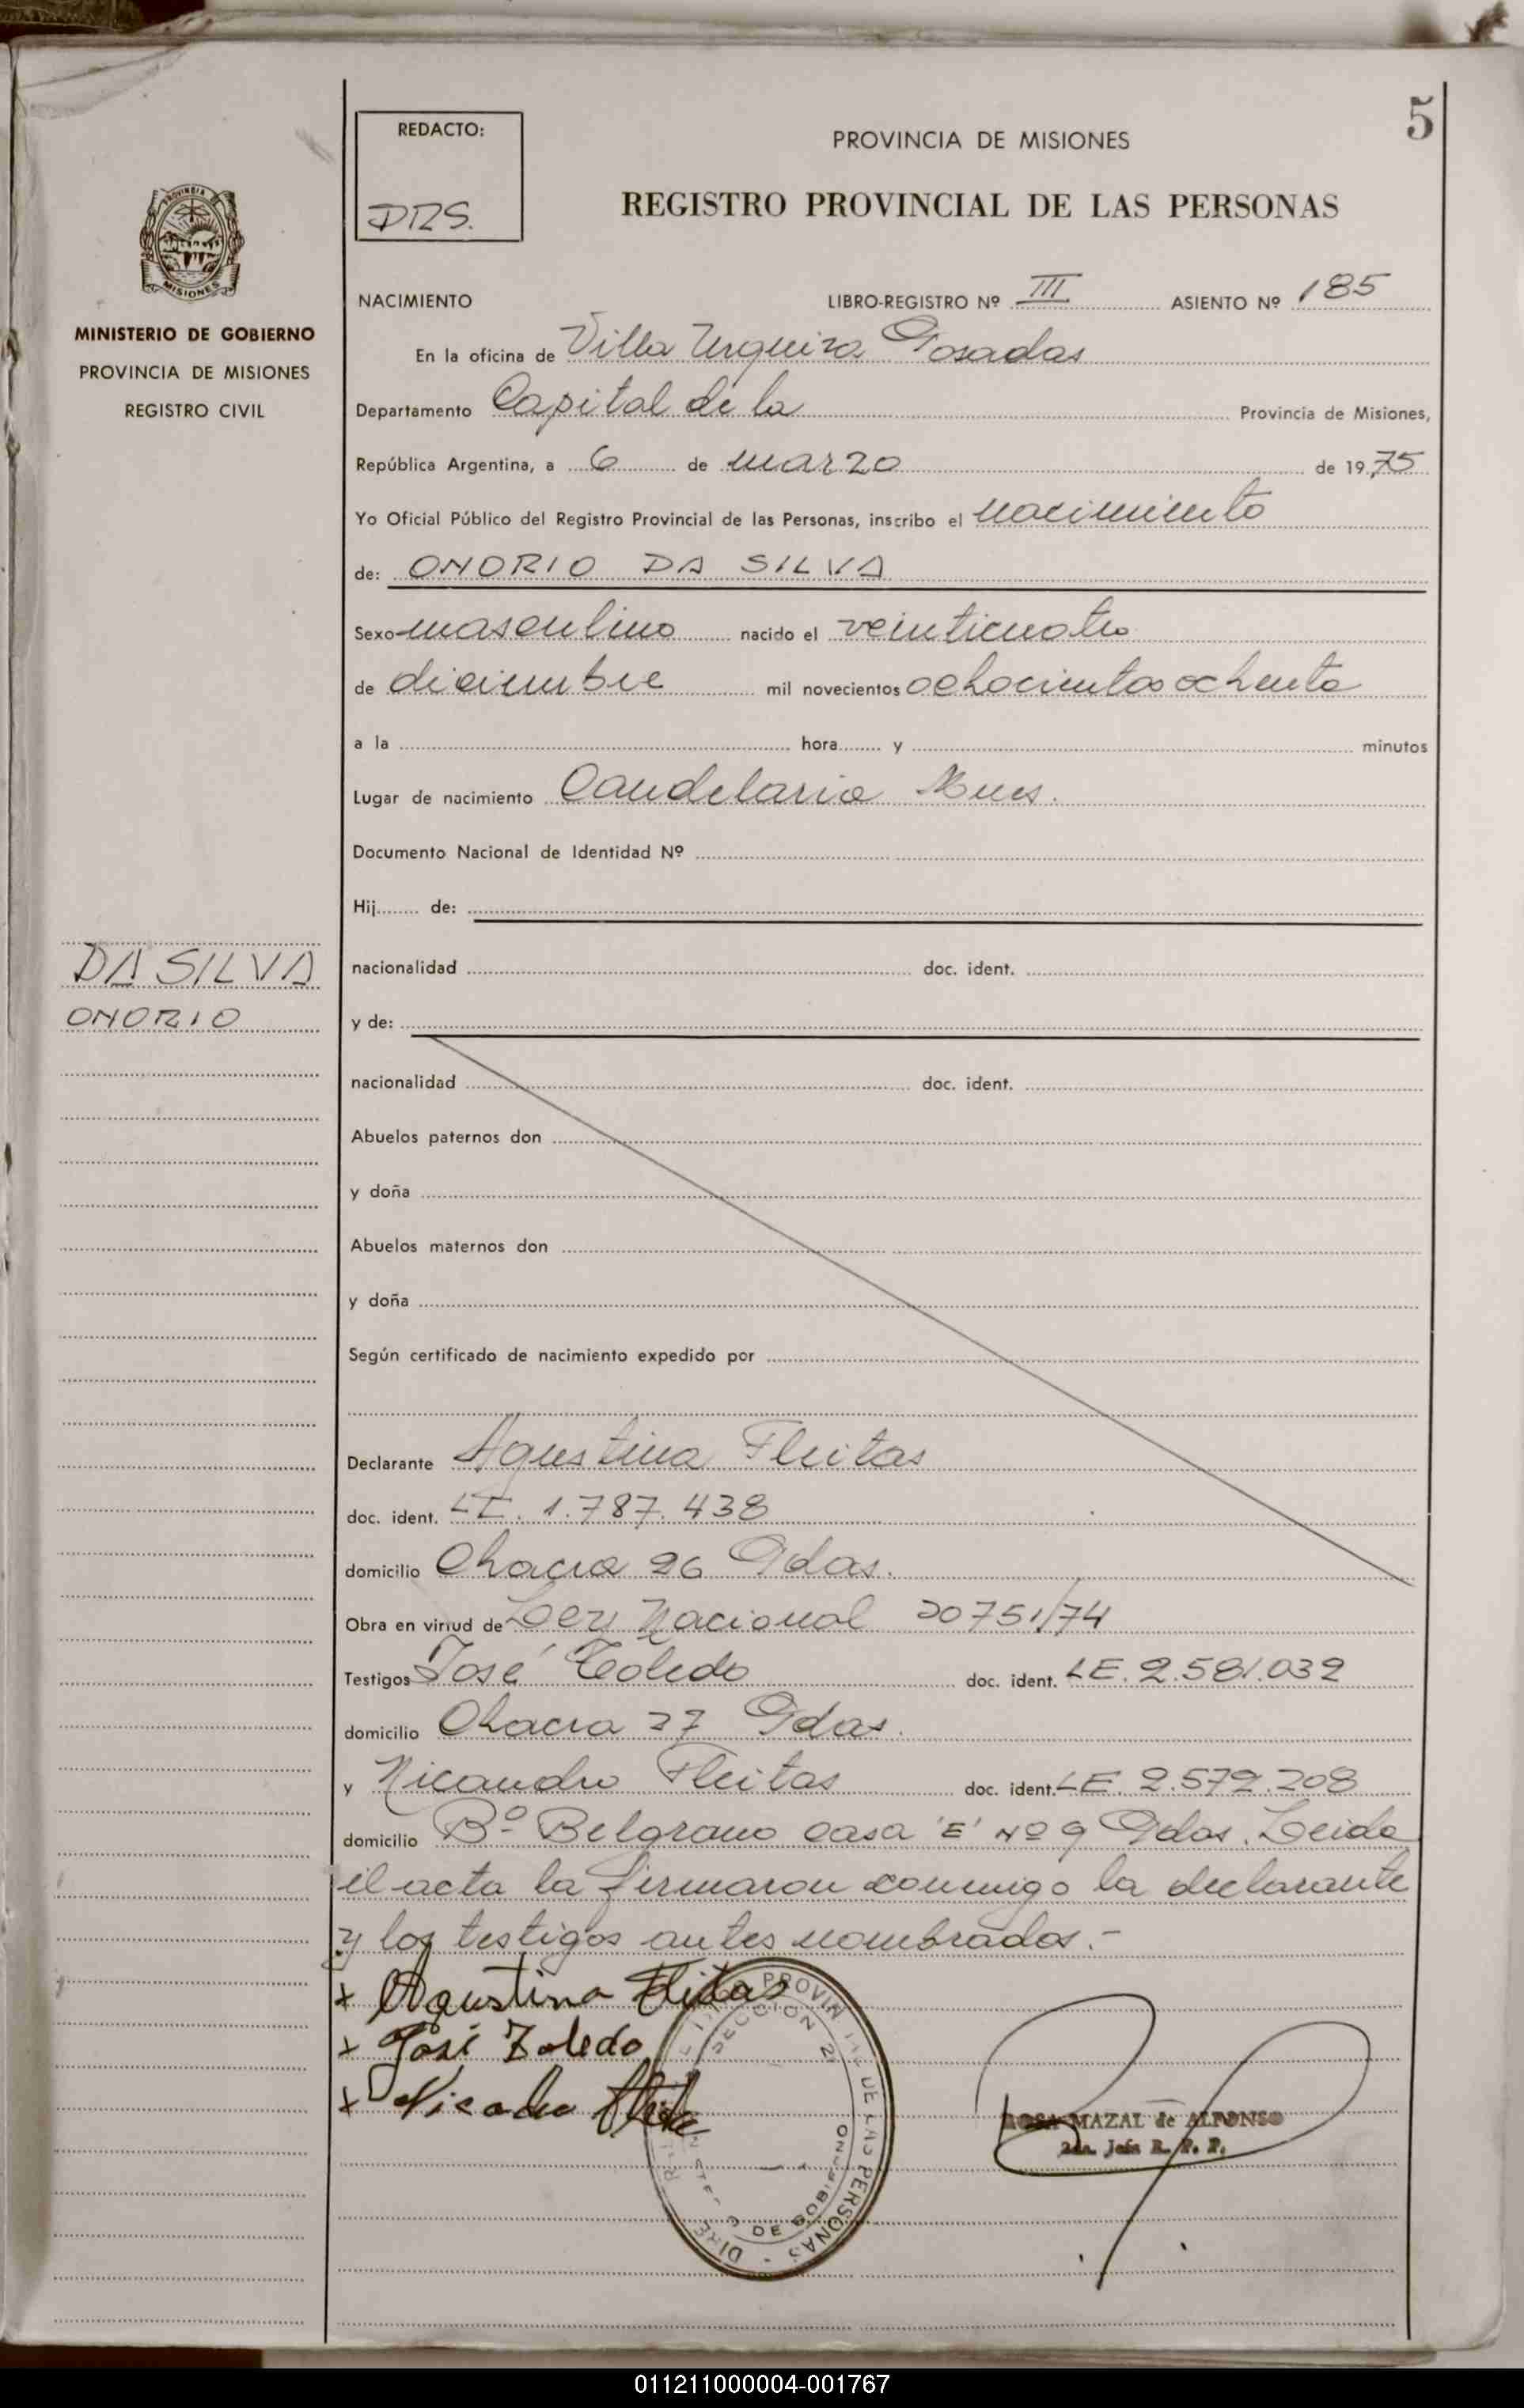 5
REDACTO:
DRS.
PROVINCIA DE MISIONES
REGISTRO PROVINCIAL DE LAS PERSONAS
MISIONES
MINISTERIO DE GOBIERNO
PROVINCIA DE MISIONES
REGISTRO CIVIL
NACIMIENTO LIBRO-REGISTRO Nº III ASIENTO Nº 185
En la oficina de Villa Urquiza Posadas
Departamento Capital de la Provincia de Misiones,
República Argentina, a 6 de marzo de 1975
Yo Oficial Público del Registro Provincial de las Personas, inscribo el nacimiento
de: ONORIO DA SILVA
Sexo masculino nacido el veinticuatro
de diciembre mil novecientos ochocientos ochenta
a la hora y minutos
Lugar de nacimiento Candelaria Mnes.
Documento Nacional de Identidad Nº
Hij de:
DA SILVA
ONORIO
nacionalidad doc. ident.
y de:
nacionalidad doc. ident.
Abuelos paternos don
y doña
Abuelos maternos don
y doña
Según certificado de nacimiento expedido por
Declarante Agustina Fleitas
doc. ident. 1.787.438
domicilio Chacra 26 Pdas.
Obra en virtud de Ley Nacional 20751/74
Testigos José Toledo doc. ident. LE. 2.581.032
domicilio Chacra 27 Pdas.
y Nicandro Fleitas doc. ident. LE. 2.572.208
domicilio Bº Belgrano casa 'E' Nº 9 Pdas. Leida
el acta la firmaron conmigo la declarante
y los testigos antes nombrados.-
x Agustina Fleitas
x José Toledo
x Nicandro
SECCION 2
DE LAS PERSONAS
DE GOBIERNO
ROSA MAZAL de ALFONSO
2da. Jefa R. P. P.
011211000004-001767